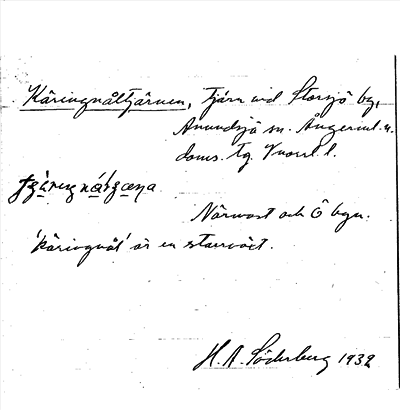 Käringnåltjärnen, tjärn vid Storsjö by,
Anundsjö sn. Ångerml. n.
doms. tg. Vnorrl. l.
Närmast och Ö byn.
'käringnål' är en starrväxt.
H. A. Söderberg 1932